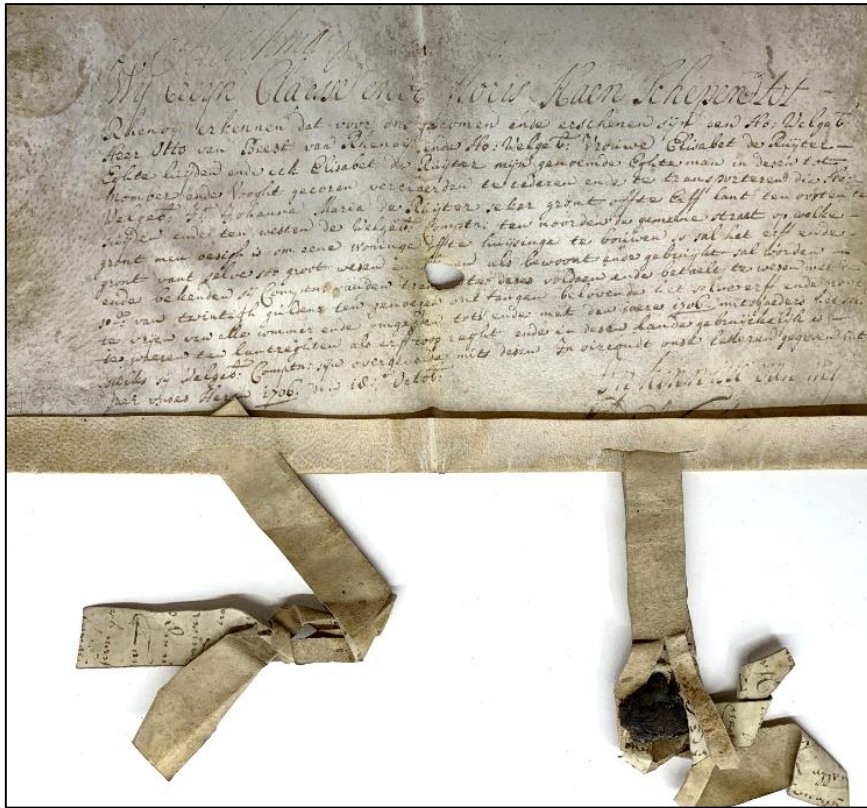 Wij Claase ende Floris Kaen Schepen tot
Rhenoij erkennen dat voor ons gecomen ende erschenen sijn een Ho: Welgeb:
Heer Otto van Beest van Rhenoij ende Ho: Welgeb: Vrouwe Elisabet de Ruijter
Eghte luijden ende eck Elisabet de Ruijter mijn genoemde Eghte man in desen tot
Momber ende Vooght gecoren verclaerden te cederen ende te transporteren die Ho:
Welgeb: Johanna Maria de Ruijter seker gront offte Erff kant ten oosten
suijden ende ten westen de Welgeb: Compten: ten noorden de gemeene straat op welke
gront men besigh is om eene woninge offte huijsinge te bouwen, sal het erff ende
gront vant selve soo groot wesen als bewoont ende gebruijkt sal worden
ende bekenden sij Compten: vanden deses voldaen ende betaelt te wesen met
van twintigh guldens ten genoegen ontfangen belovende het selve erff ende
te vrijen van alle commer ende tots ende met den jaere 1706 mitsgaeders het
te waeren ten lantreghten als erffcoop reght ende in desen lande gebruijckelijk is
sulks sij Welgeb: Compten: sijn overgevende mits desen In oirconde onse letteren gegeven int
jaer onses Heren 1706. den 18: